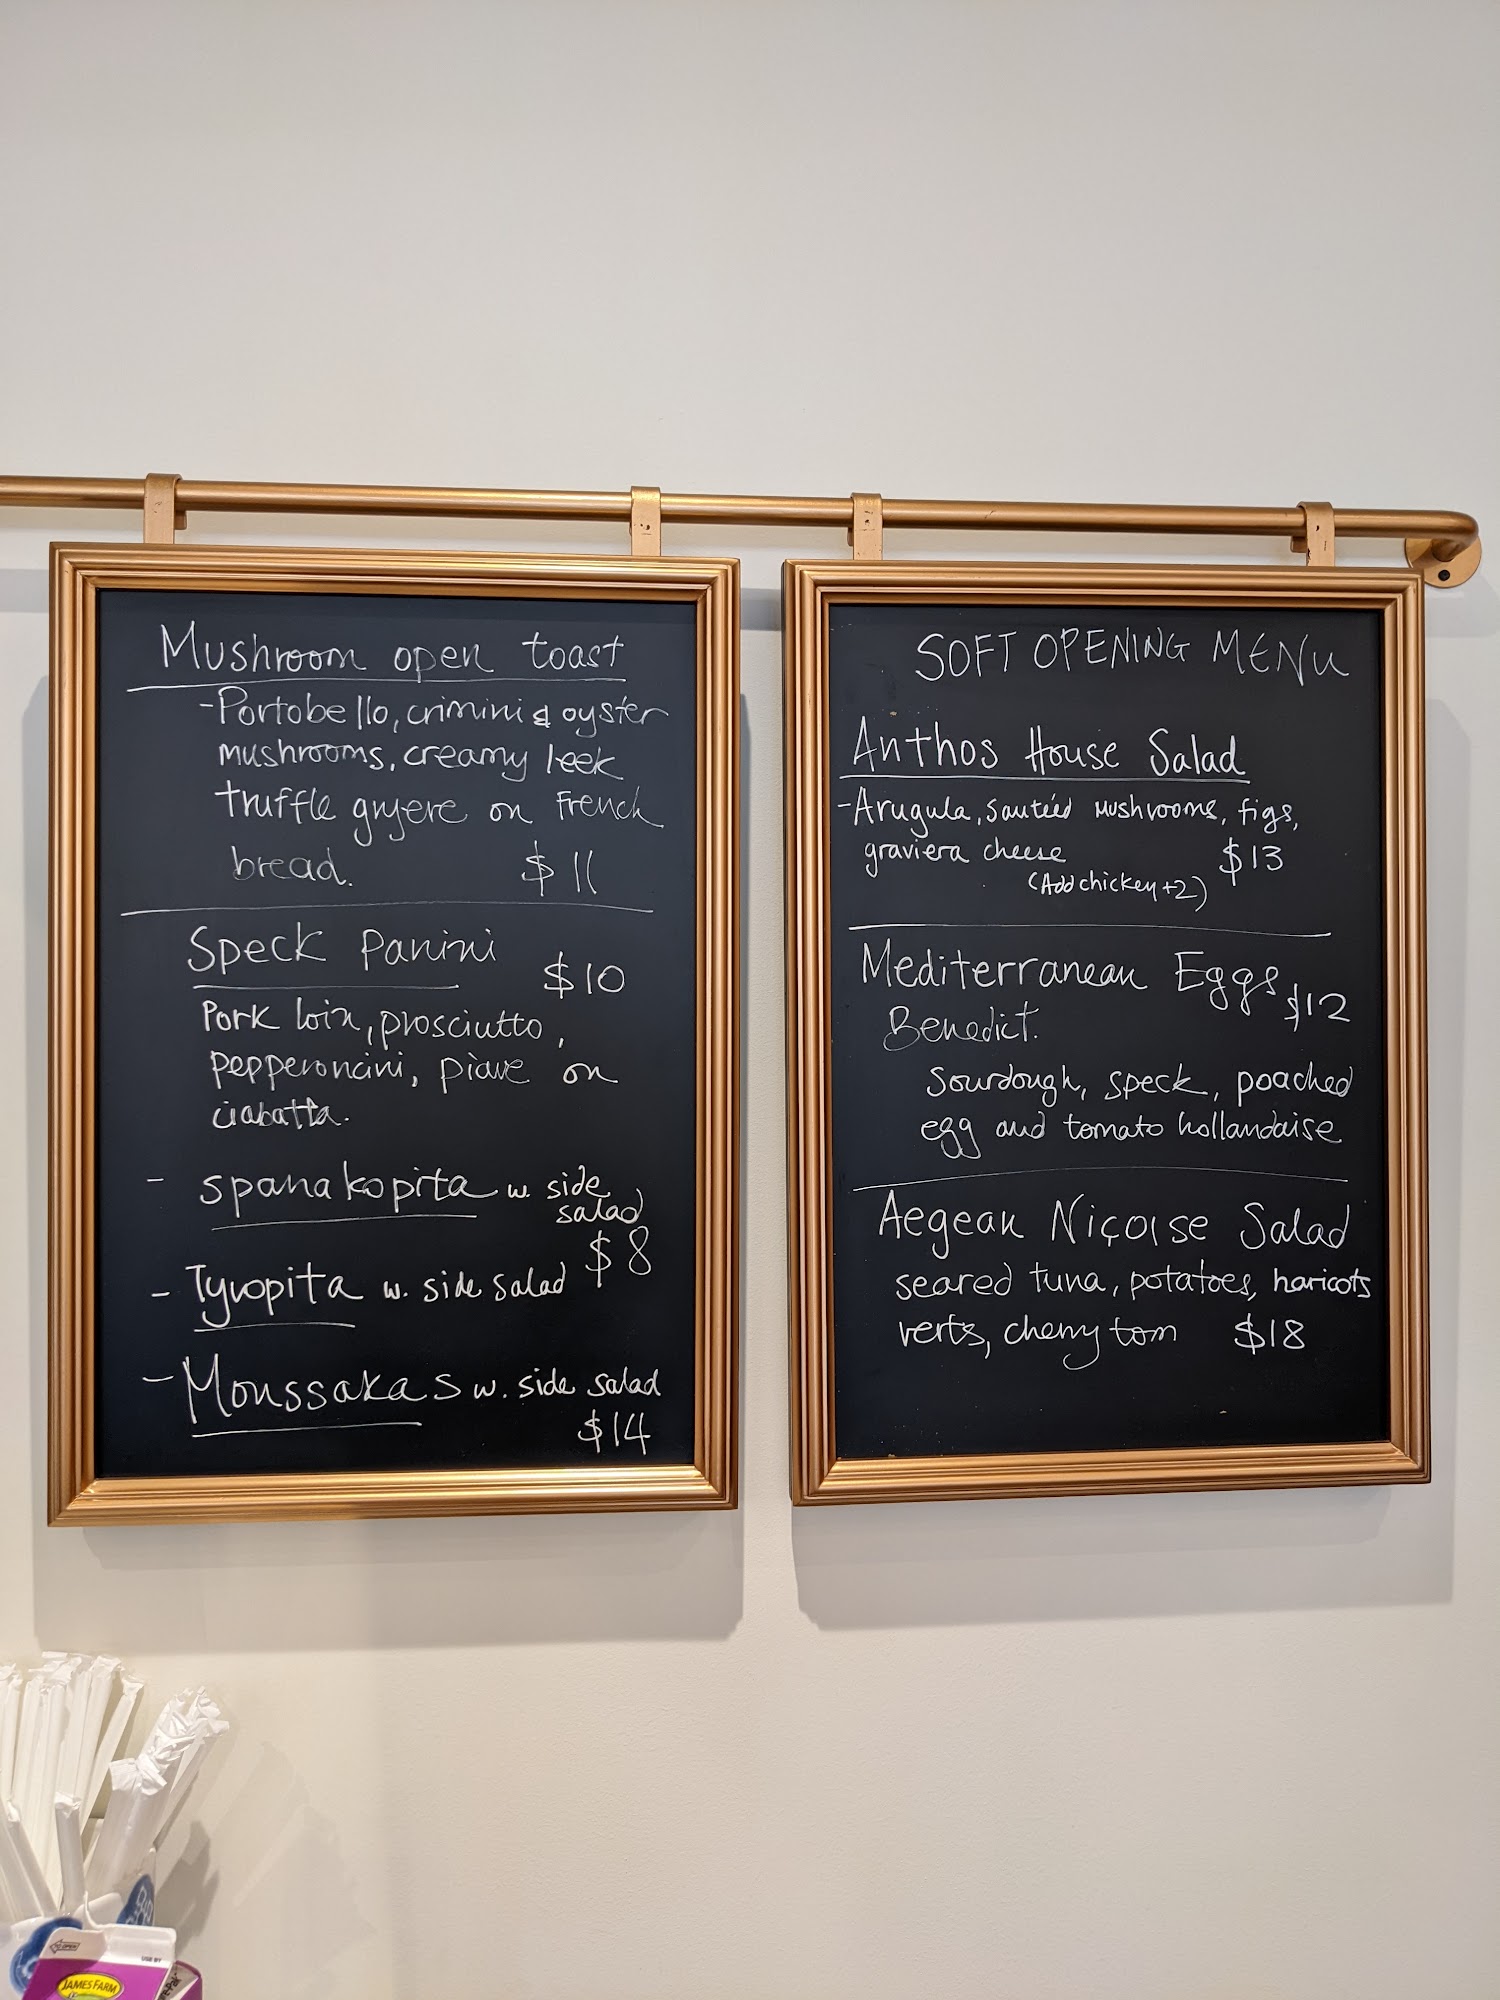 Mushroom open toast
-Portobello, crimini & oyster
mushrooms, creamy leek
truffle gryere on French
bread. $11
Speck Panini
$10
Pork loin, prosciutto,
pepperoncini, piave on
ciabatta.
- spanakopita w. side
salad
$8
- Tyropita w. side salad
- Moussakas w. side salad
$14
SOFT OPENING MENU
Anthos House Salad
-Arugula, sautéed mushrooms, figs,
graviera cheese $13
(Add chickey +2)
Mediterranean Eggs
$12
Benedict.
sourdough, speck, poached
egg and tomato hollandaise
Aegean Niçoise Salad
seared tuna, potatoes, haricots
verts, cherry tom $18
TO OPEN
USE BY
JAMES FARM